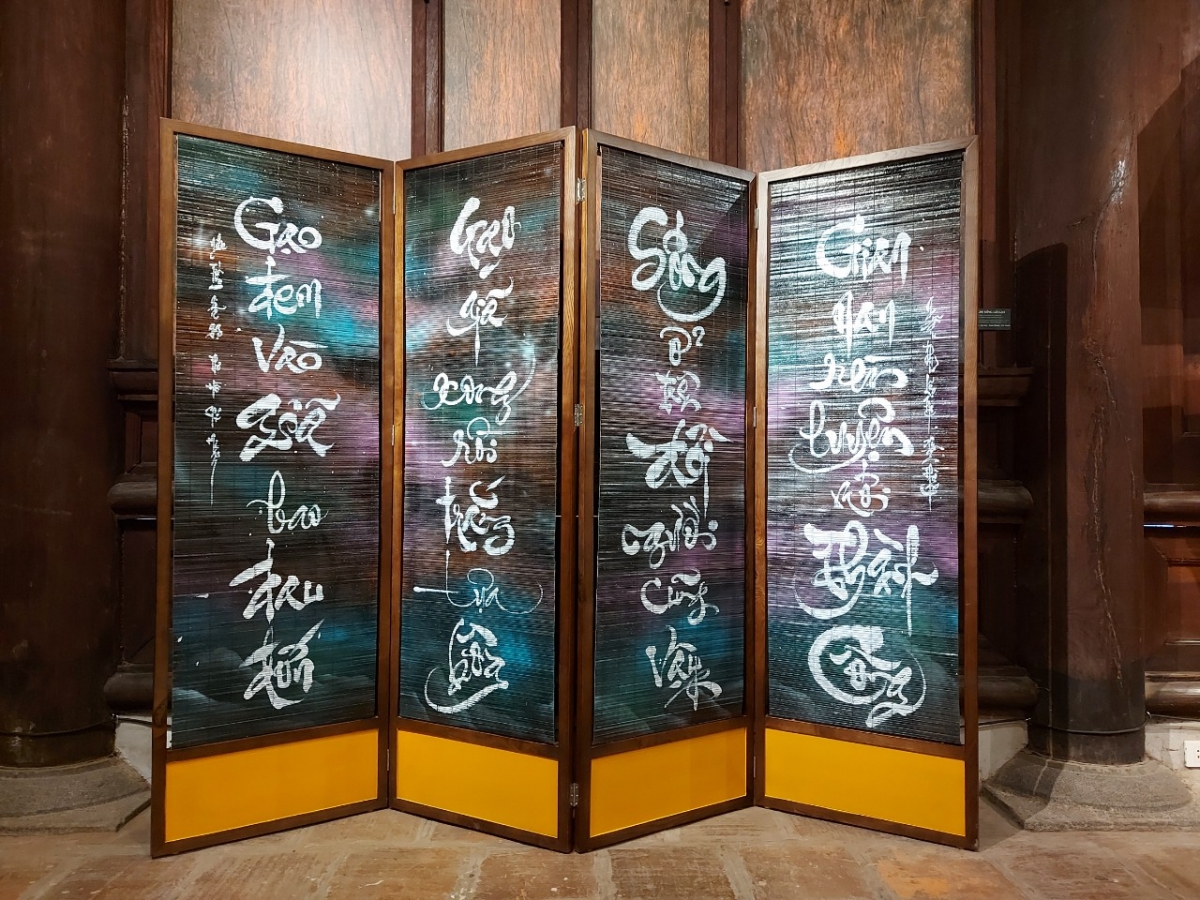 Gạo đem vào giã bao đau đớn
Gạo giã xong rồi trắng tựa bông
Sống ở trên đời người cũng vậy
Gian nan rèn luyện mới thành công